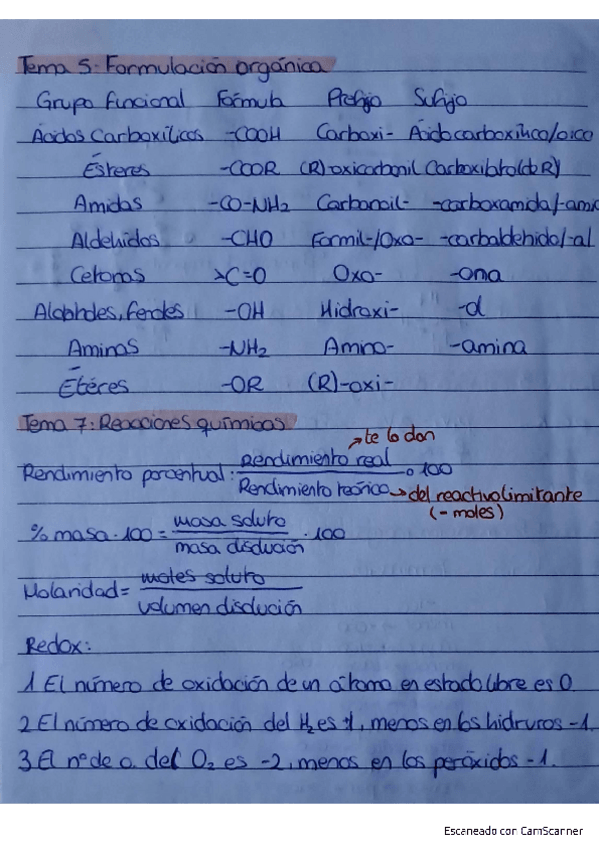 Tema 5: Formulación orgánica
Grupo funcional Fórmula Prefijo Sufijo
Ácidos Carboxílicos -COOH Carboxi- Ácido carboxílico/oico
Ésteres -COOR (R)-oxicarbonil Carboxilato(de R)
Amidas -CO-NH₂ Carbamoil- -carboxamida/-ami
Aldehidos -CHO Formil-/Oxo- -carbaldehido/-al
Cetonas >C=O Oxo- -ona
Alcoholes, fenoles -OH Hidroxi- -ol
Aminas -NH₂ Amino- -amina
Étéres -OR (R)-oxi-
Tema 7: Reacciones químicas
te lo dan
Rendimiento porcentual: Rendimiento real / Rendimiento teórico · 100
del reactivo limitante
(- moles)
% masa · 100 = masa soluto / masa disolución · 100
Molaridad = moles soluto / volumen disolución
Redox:
1 El número de oxidación de un átomo en estado libre es 0.
2 El número de oxidación del H₂ es +1, menos en los hidruros -1.
3 El nº de o. del O₂ es -2, menos en los peróxidos -1.
Escaneado con CamScanner